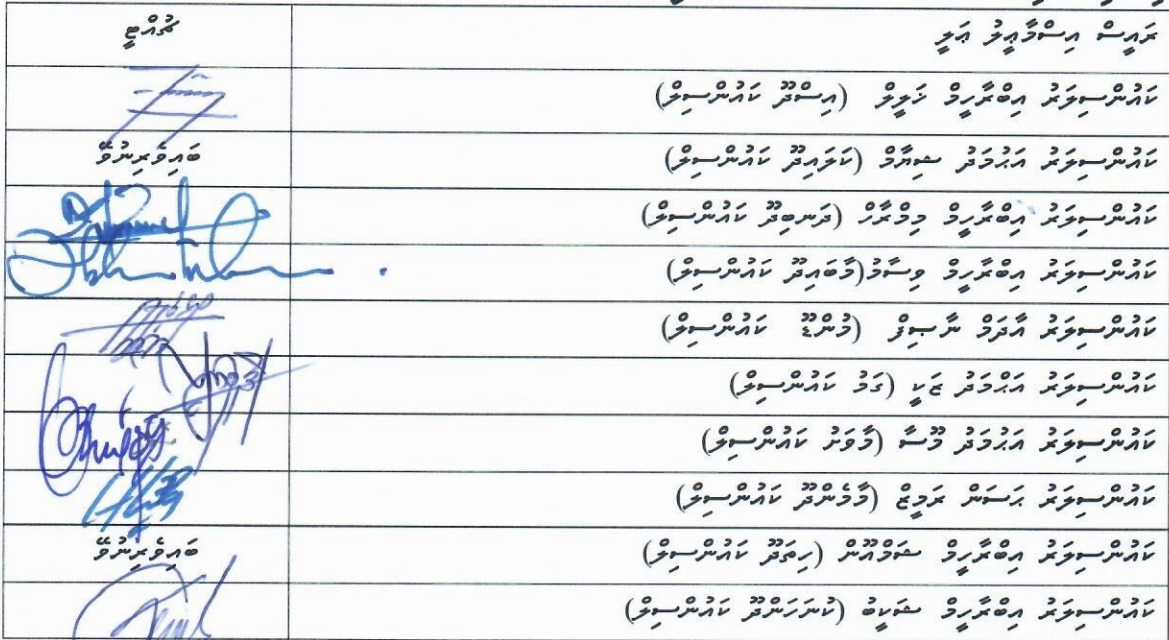 ރައީސް އިސްމާޢީލު ޢަލީ ޗުއްޓީ
ކައުންސިލަރު އިބްރާހީމް ޚަލީލް (އިސްދޫ ކައުންސިލް)
ކައުންސިލަރު އަޙުމަދު ޝިޔާމް (ކަލައިދޫ ކައުންސިލް) ބައިވެރިނުވޭ
ކައުންސިލަރު އިބްރާހީމް މިމްރާހް (ދަނބިދޫ ކައުންސިލް)
ކައުންސިލަރު އިބްރާހީމް ވިސާމު(މާބައިދޫ ކައުންސިލް)
ކައުންސިލަރު އާދަމް ނާޞިފް (މުންޑޫ ކައުންސިލް)
ކައުންސިލަރު އަޙްމަދު ޒަކީ (ގަމު ކައުންސިލް)
ކައުންސިލަރު އަޙުމަދު މޫސާ (މާވަށު ކައުންސިލް)
ކައުންސިލަރު ޙަސަން ރަމީޒް (މާމެންދޫ ކައުންސިލް)
ކައުންސިލަރު އިބްރާހީމް ޝަމްއޫން (ހިތަދޫ ކައުންސިލް) ބައިވެރިނުވޭ
ކައުންސިލަރު އިބްރާހީމް ޝަކީބު (ކުނަހަންދޫ ކައުންސިލް)